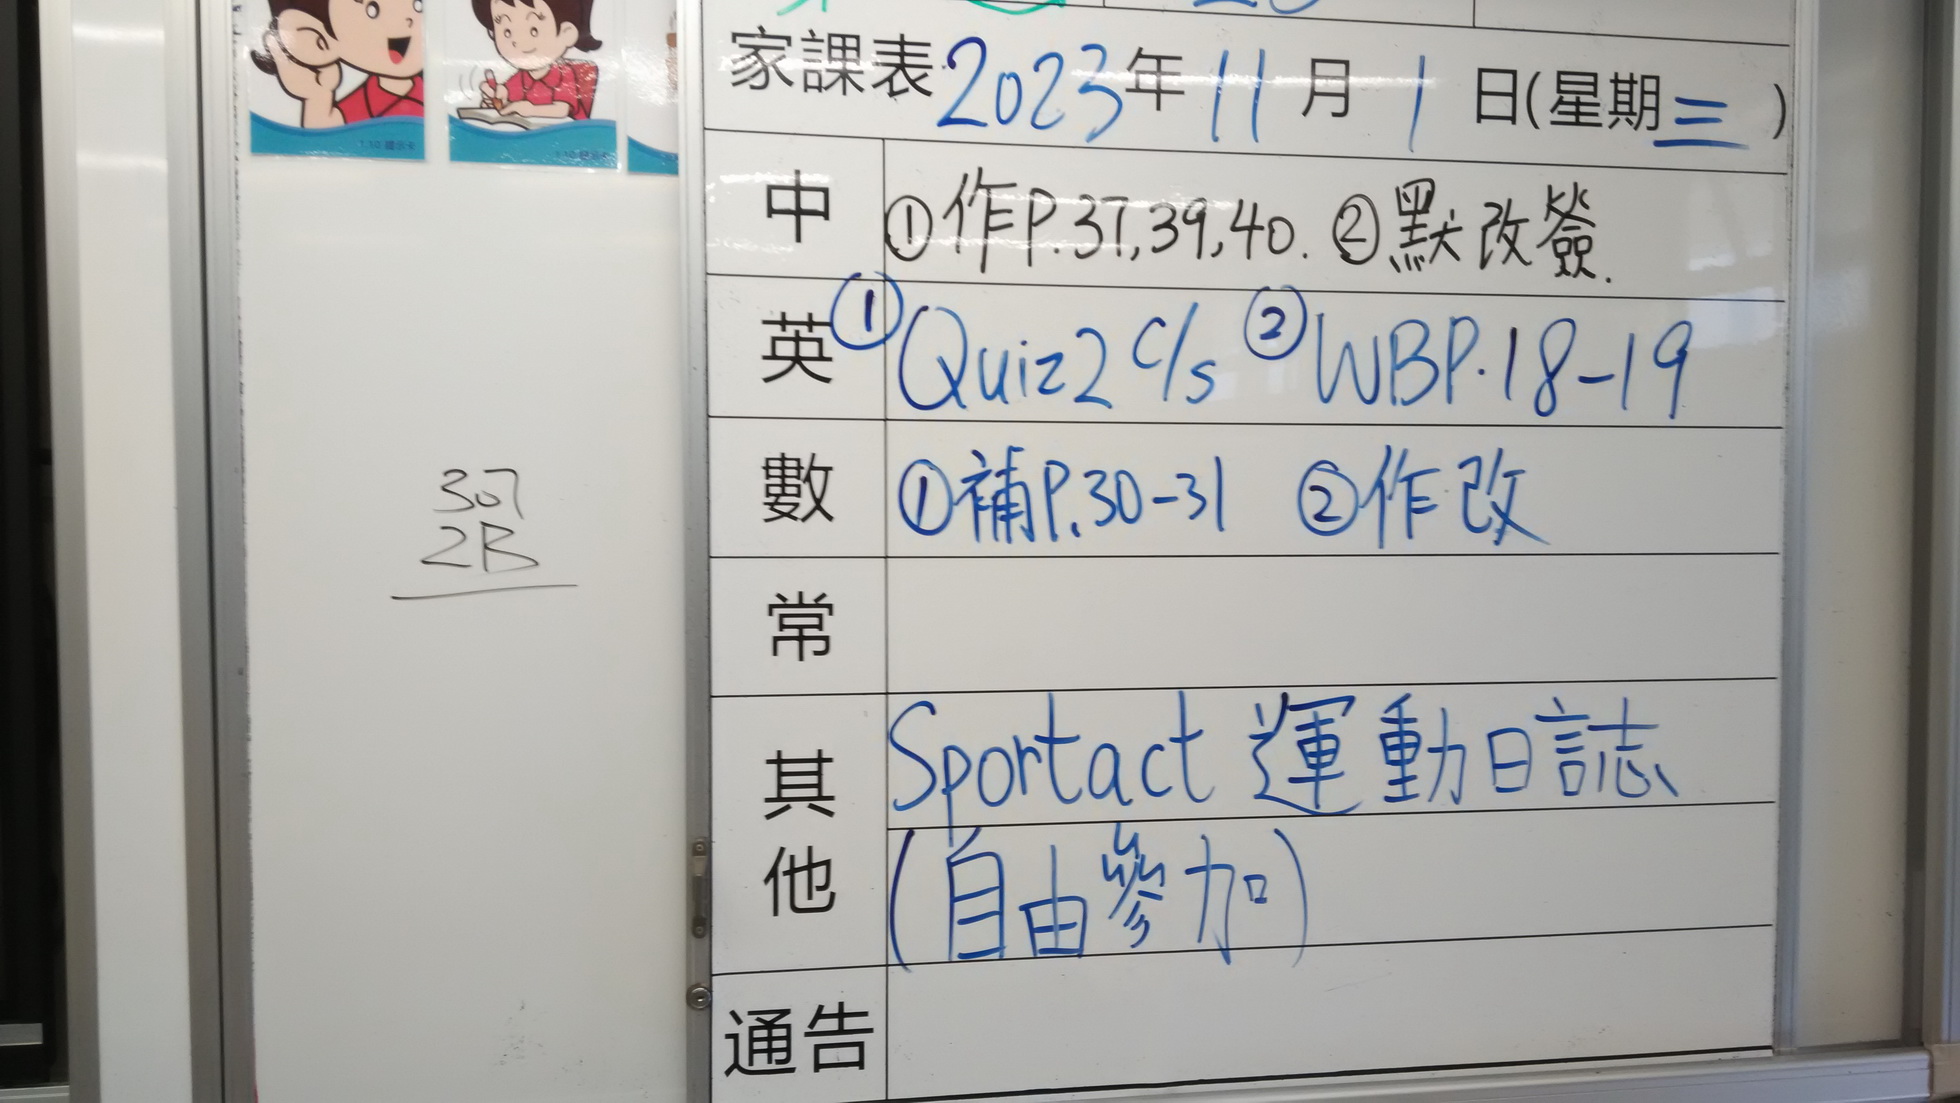 家課表 2023年11月1日(星期三)
中 ①作P.37,39,40. ②默改簽.
英 ①Quiz2 c/s ②WBP.18-19
數 ①補P.30-31 ②作改
常
其他 Sportact 運動日誌
(自由參加)
通告
307
2B